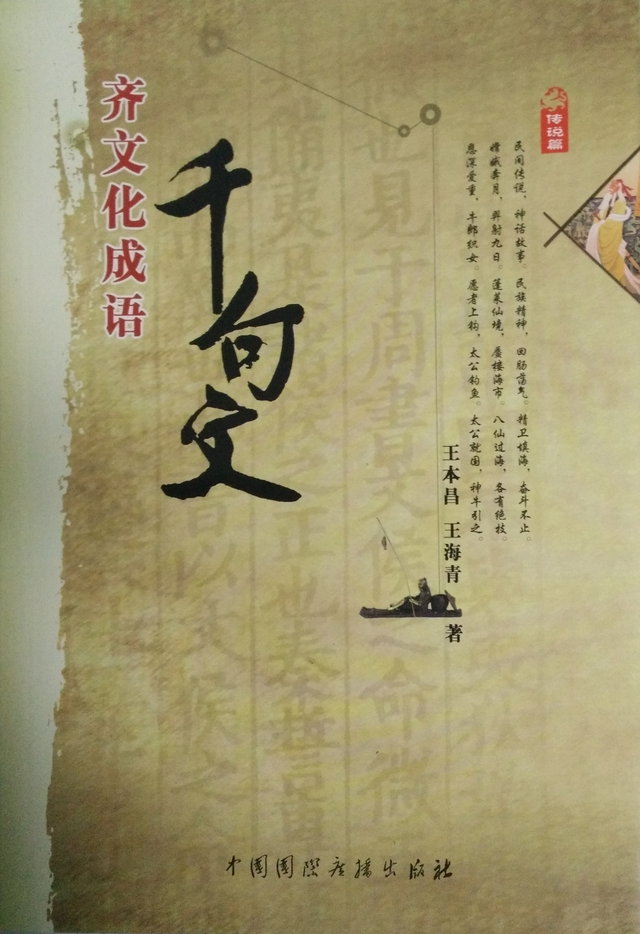 齐文化成语
千句文
传说篇
民间传说，神话故事。民族精神，回肠荡气。精卫填海，奋斗不止。
嫦娥奔月，羿射九日。蓬莱仙境，蜃楼海市。八仙过海，各有绝技。
恩深爱重，牛郎织女。愿者上钩，太公钓鱼。太公就国，神牛引之。
王本昌 王海青 著
中国国际广播出版社